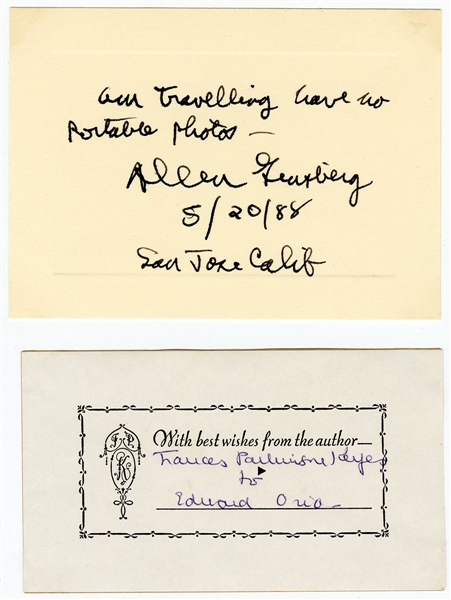 am travelling have no
portable photos —
Allen Ginsberg
5/20/88
San Jose Calif
F P
K
With best wishes from the author
Frances Parkinson Keyes
to
Edward